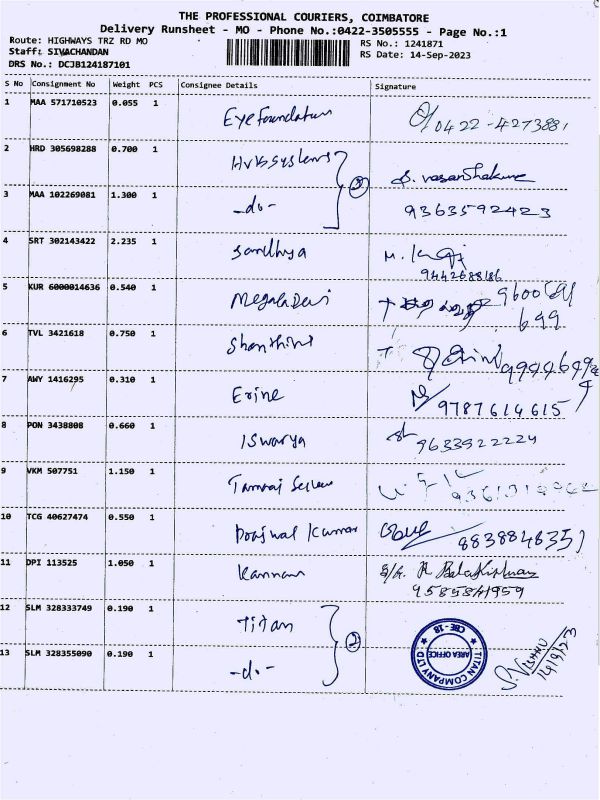 THE PROFESSIONAL COURIERS, COIMBATORE
Delivery Runsheet - MO - Phone No.:0422-3505555 - Page No.:1
Route: HIGHWAYS TRZ RD MO
RS No.: 1241871
Staff: SIVACHANDAN
RS Date: 14-Sep-2023
DRS No.: DCJB124187101
S No Consignment No Weight PCS Consignee Details Signature
1 MAA 571710523 0.055 1 Eyefoundation 0422-4273881
2 HRD 305698288 0.700 1 S. vasanthakumar
3 MAA 102269081 1.300 1 -do- 2 9363592423
4 SRT 302143422 2.235 1 Sandhya
9442688186
5 KUR 6000014636 0.540 1 MegalaDevi 9600691
699
6 TVL 3421618 0.750 1 Shanthini
7 AWY 1416295 0.310 1 Erine 9787614615
8 PON 3438808 0.660 1 Iswarya 9633922224
9 VKM 507751 1.150 1
10 TCG 40627474 0.550 1 Prajwal Kumar 8838848351
11 DPI 113525 1.050 1 Kannan R BalaKrishnan
9585841959
12 SLM 328333749 0.190 1 Titan
13 SLM 328355090 0.190 1 -do- 2
TITAN COMPANY LTD
AREA OFFICE
CBE - 18
S. Vishnu
14/9/23